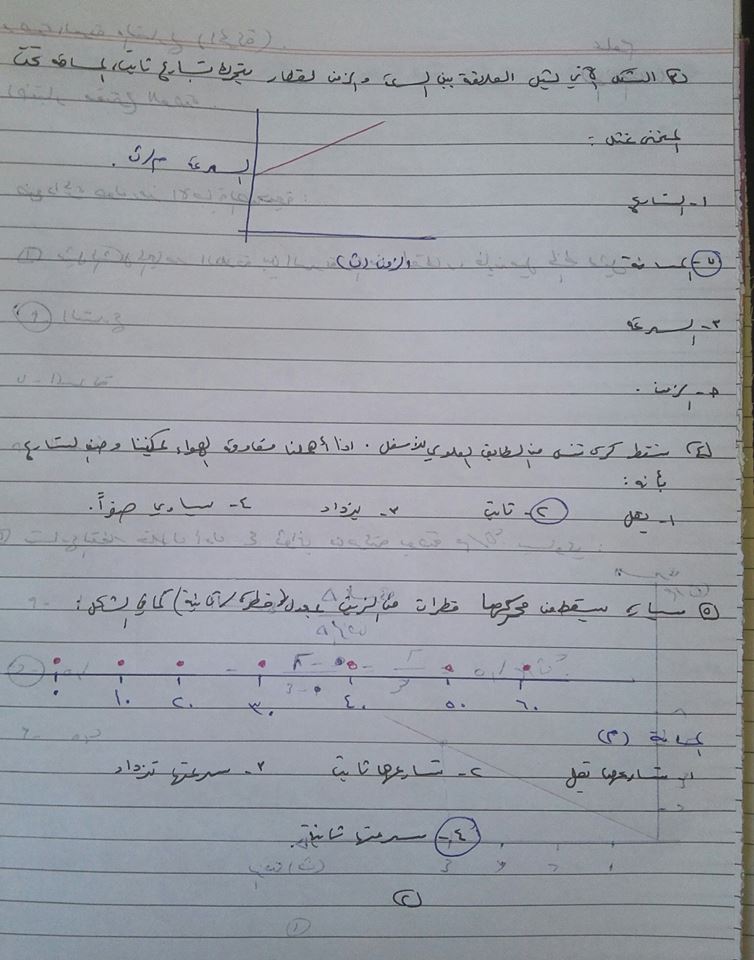 ٣) الشكل الآتي يمثل العلاقة بين السرعة والزمن لقطار يتحرك بتسارع ثابت، المساحة تحت
المنحنى تمثل :
السرعة م/ث .
١- التسارع
٢- المسافة
الزمن (ث)
٣- السرعة
٤- الزمن .
٤) سقط كرة تنس من الطابق العلوي للأسفل . اذا أهملنا مقاومة الهواء يمكننا وصف التسارع
بأنه :
١- يقل ٢- ثابت ٣- يزداد ٤- يساوي صفراً .
٥) سيارة يسقط من محركها قطرات من الزيت بمعدل (قطرة / ثانية) كما في الشكل :
٠ ١٠ ٢٠ ٣٠ ٤٠ ٥٠ ٦٠
المسافة (م)
١- تسارعها يقل ٢- تسارعها ثابت ٣- سرعتها تزداد
٤- سرعتها ثابتة
(٢)